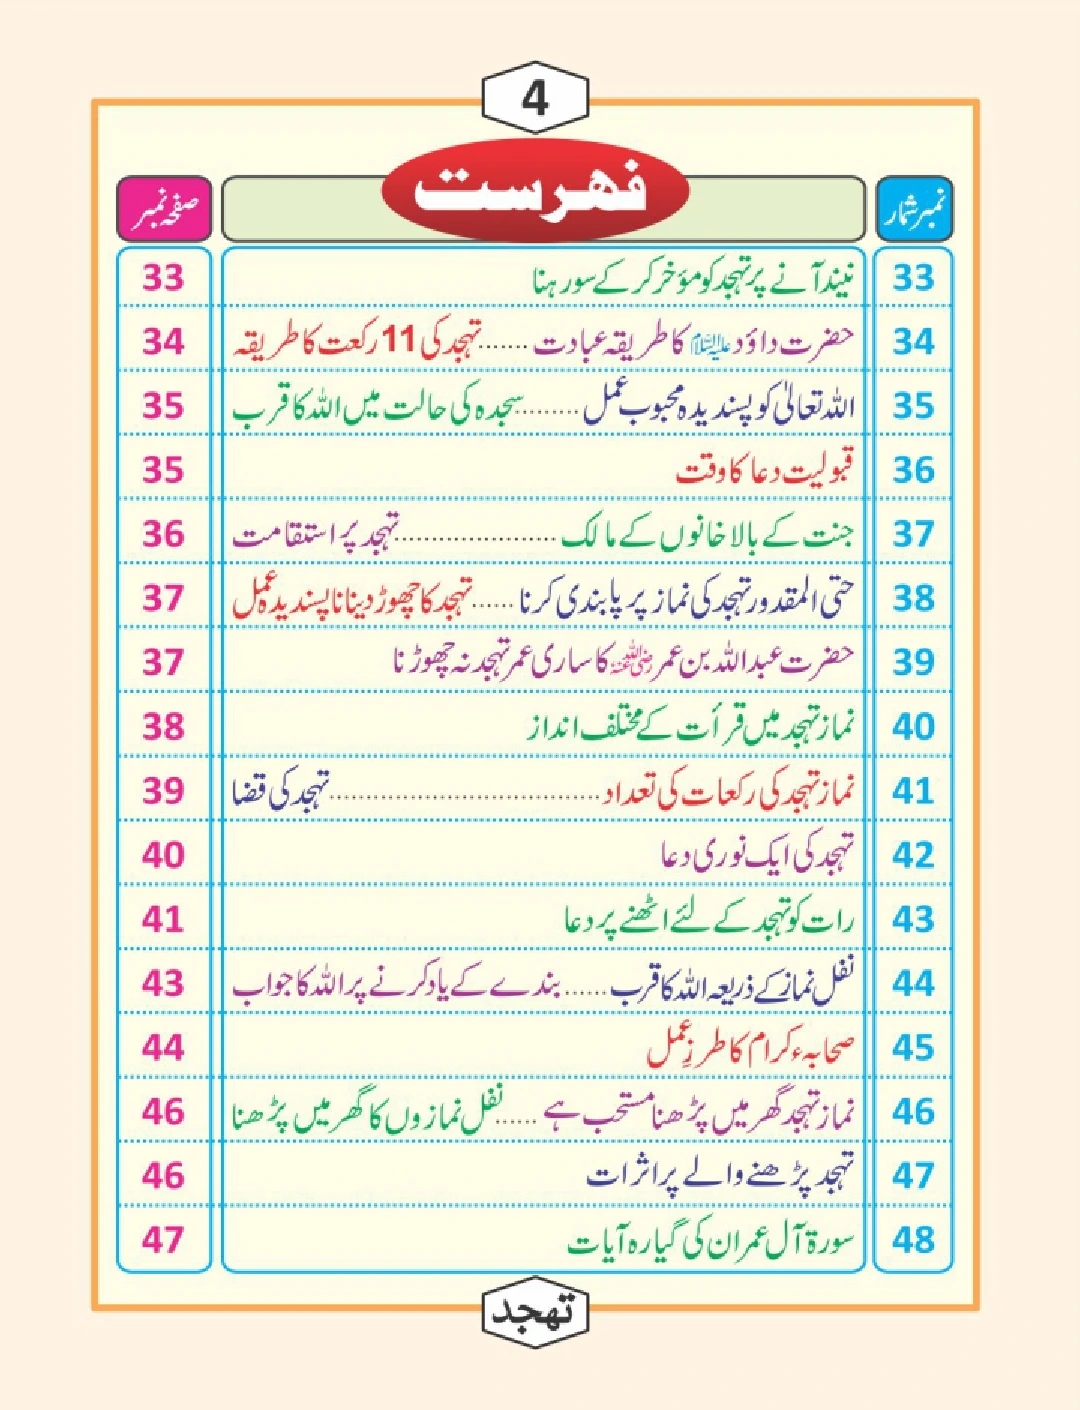 4
فہرست
نمبر شمار صفحہ نمبر
33 نیند آنے پر تہجد کو مؤخر کر کے سو رہنا 33
34 حضرت داؤد علیہ السلام کا طریقہ عبادت ....... تہجد کی 11 رکعت کا طریقہ 34
35 اللہ تعالیٰ کو پسندیدہ محبوب عمل ........ سجدہ کی حالت میں اللہ کا قرب 35
36 قبولیت دعا کا وقت 35
37 جنت کے بالا خانوں کے مالک ....................... تہجد پر استقامت 36
38 حتی المقدور تہجد کی نماز پر پابندی کرنا ...... تہجد کا چھوڑ دینا ناپسندیدہ عمل 37
39 حضرت عبداللہ بن عمر رضی اللہ عنہ کا ساری عمر تہجد نہ چھوڑنا 37
40 نماز تہجد میں قرأت کے مختلف انداز 38
41 نماز تہجد کی رکعات کی تعداد ....................................... تہجد کی قضا 39
42 تہجد کی ایک نوری دعا 40
43 رات کو تہجد کے لئے اٹھنے پر دعا 41
44 نفل نماز کے ذریعہ اللہ کا قرب ...... بندے کے یاد کرنے پر اللہ کا جواب 43
45 صحابہء کرام کا طرزِ عمل 44
46 نماز تہجد گھر میں پڑھنا مستحب ہے ...... نفل نمازوں کا گھر میں پڑھنا 46
47 تہجد پڑھنے والے پر اثرات 46
48 سورۃ آل عمران کی گیارہ آیات 47
تهجد